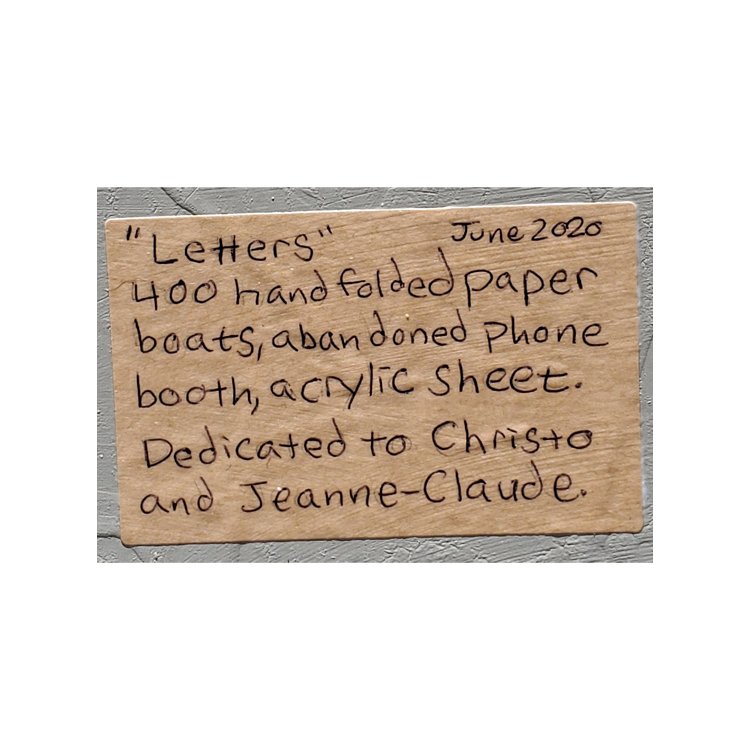 "Letters" June 2020
400 hand folded paper
boats, abandoned phone
booth, acrylic sheet.
Dedicated to Christo
and Jeanne-Claude.